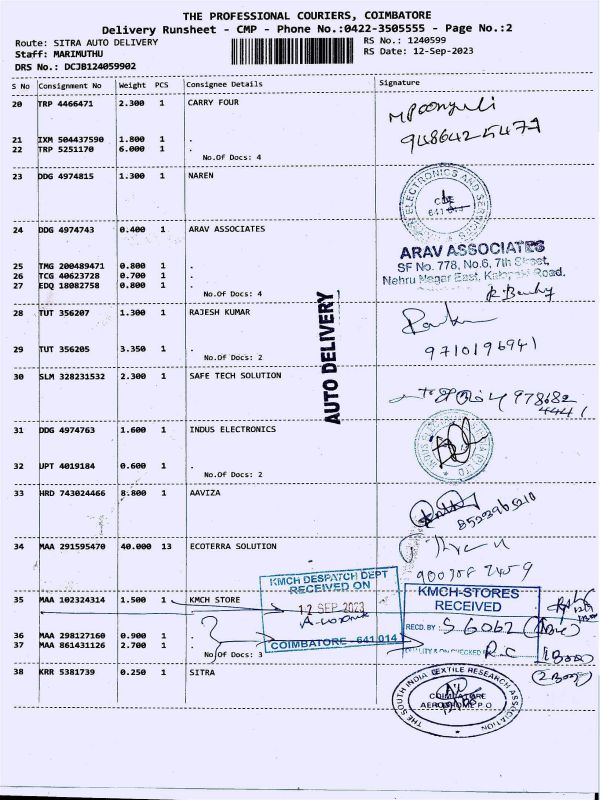 THE PROFESSIONAL COURIERS, COIMBATORE
Delivery Runsheet - CMP - Phone No.:0422-3505555 - Page No.:2
Route: SITRA AUTO DELIVERY RS No.: 1240599
Staff: MARIMUTHU RS Date: 12-Sep-2023
DRS No.: DCJB124059902
S No Consignment No Weight PCS Consignee Details Signature
20 TRP 4466471 2.300 1 CARRY FOUR
21 IXM 504437590 1.800 1 .
22 TRP 5251170 6.000 1 .
No.Of Docs: 4
23 DDG 4974815 1.300 1 NAREN
ELECTRONICS AND SERVICES
24 DDG 4974743 0.400 1 ARAV ASSOCIATES
ARAV ASSOCIATES
SF No. 778, No.6, 7th Street,
Nehru Nagar East, Kalapatti Road.
25 TMG 200489471 0.800 1 .
26 TCG 40623728 0.700 1 .
27 EDQ 18082758 0.800 1 .
No.Of Docs: 4
AUTO DELIVERY
28 TUT 356207 1.300 1 RAJESH KUMAR
9710196941
29 TUT 356205 3.350 1 .
No.Of Docs: 2
30 SLM 328231532 2.300 1 SAFE TECH SOLUTION
978682
4441
31 DDG 4974763 1.600 1 INDUS ELECTRONICS
32 UPT 4019184 0.600 1 .
No.Of Docs: 2
33 HRD 743024466 8.800 1 AAVIZA
34 MAA 291595470 40.000 13 ECOTERRA SOLUTION
KMCH DESPATCH DEPT
RECEIVED ON
12 SEP 2023
COIMBATORE - 641 014
35 MAA 102324314 1.500 1 KMCH STORE
KMCH-STORES
RECEIVED
RECD. BY : S 6062
36 MAA 298127160 0.900 1 .
37 MAA 861431126 2.700 1 .
No.Of Docs: 3
R.C
38 KRR 5381739 0.250 1 SITRA
THE SOUTH INDIA TEXTILE RESEARCH ASSOCIATION
COIMBATORE
AERODROME P.O